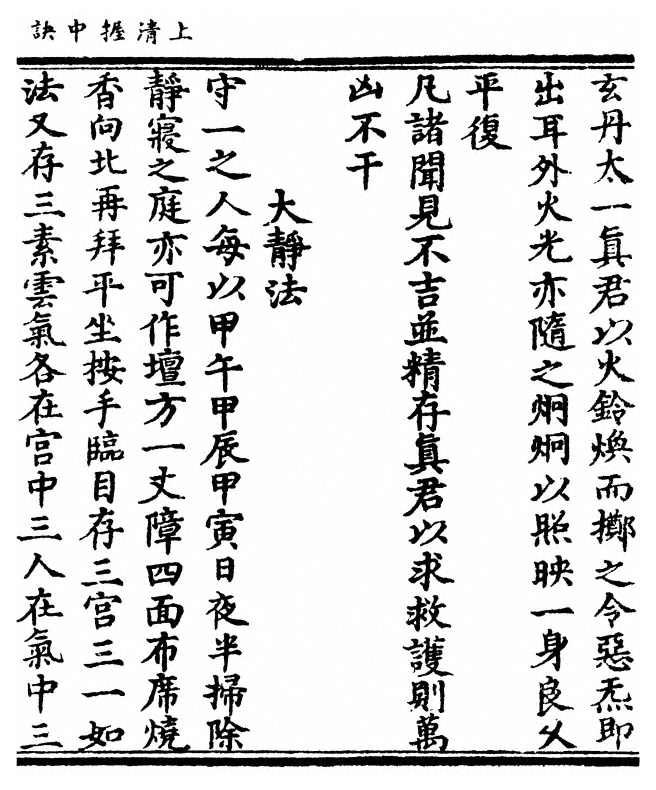 上清握中訣
玄丹太一眞君以火鈴煥而擲之令惡炁即
出耳外火光亦隨之炯炯以照映一身良久
平復
凡諸聞見不吉並精存眞君以求救護則萬
凶不干
大靜法
守一之人每以甲午甲辰甲寅日夜半掃除
靜寢之庭亦可作壇方一丈障四面布席燒
香向北再拜平坐按手臨目存三宮三一如
法又存三素雲氣各在宮中三人在氣中三